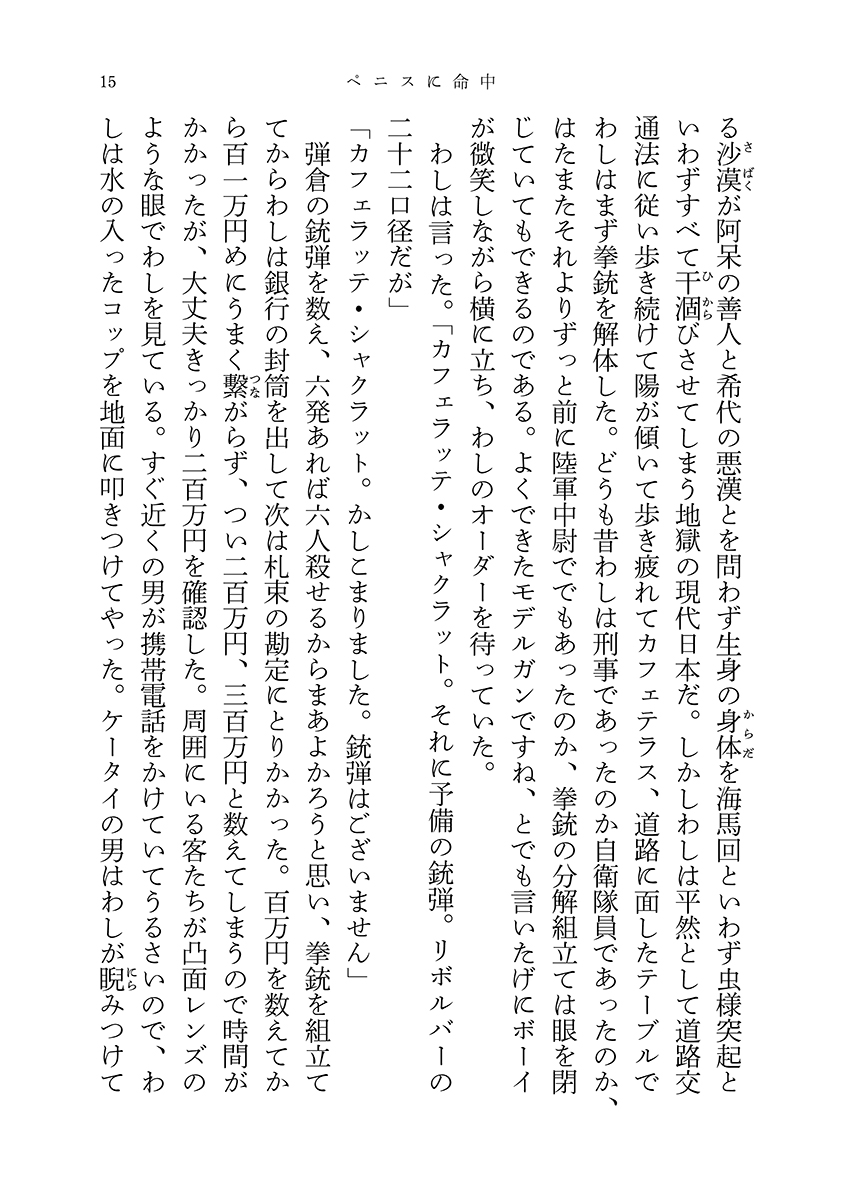 15
ペニスに命中
る沙漠が阿呆の善人と希代の悪漢とを問わず生身の身体を海馬回といわず虫様突起と
いわずすべて干涸びさせてしまう地獄の現代日本だ。しかしわしは平然として道路交
通法に従い歩き続けて陽が傾いて歩き疲れてカフェテラス、道路に面したテーブルで
わしはまず拳銃を解体した。どうも昔わしは刑事であったのか自衛隊員であったのか、
はたまたそれよりずっと前に陸軍中尉ででもあったのか、拳銃の分解組立ては眼を閉
じていてもできるのである。よくできたモデルガンですね、とでも言いたげにボーイ
が微笑しながら横に立ち、わしのオーダーを待っていた。
わしは言った。「カフェラッテ・シャクラット。それに予備の銃弾。リボルバーの
二十二口径だが」
「カフェラッテ・シャクラット。かしこまりました。銃弾はございません」
弾倉の銃弾を数え、六発あれば六人殺せるからまあよかろうと思い、拳銃を組立て
てからわしは銀行の封筒を出して次は札束の勘定にとりかかった。百万円を数えてか
ら百一万円めにうまく繫がらず、つい二百万円、三百万円と数えてしまうので時間が
かかったが、大丈夫きっかり二百万円を確認した。周囲にいる客たちが凸面レンズの
ような眼でわしを見ている。すぐ近くの男が携帯電話をかけていてうるさいので、わ
しは水の入ったコップを地面に叩きつけてやった。ケータイの男はわしが睨みつけて